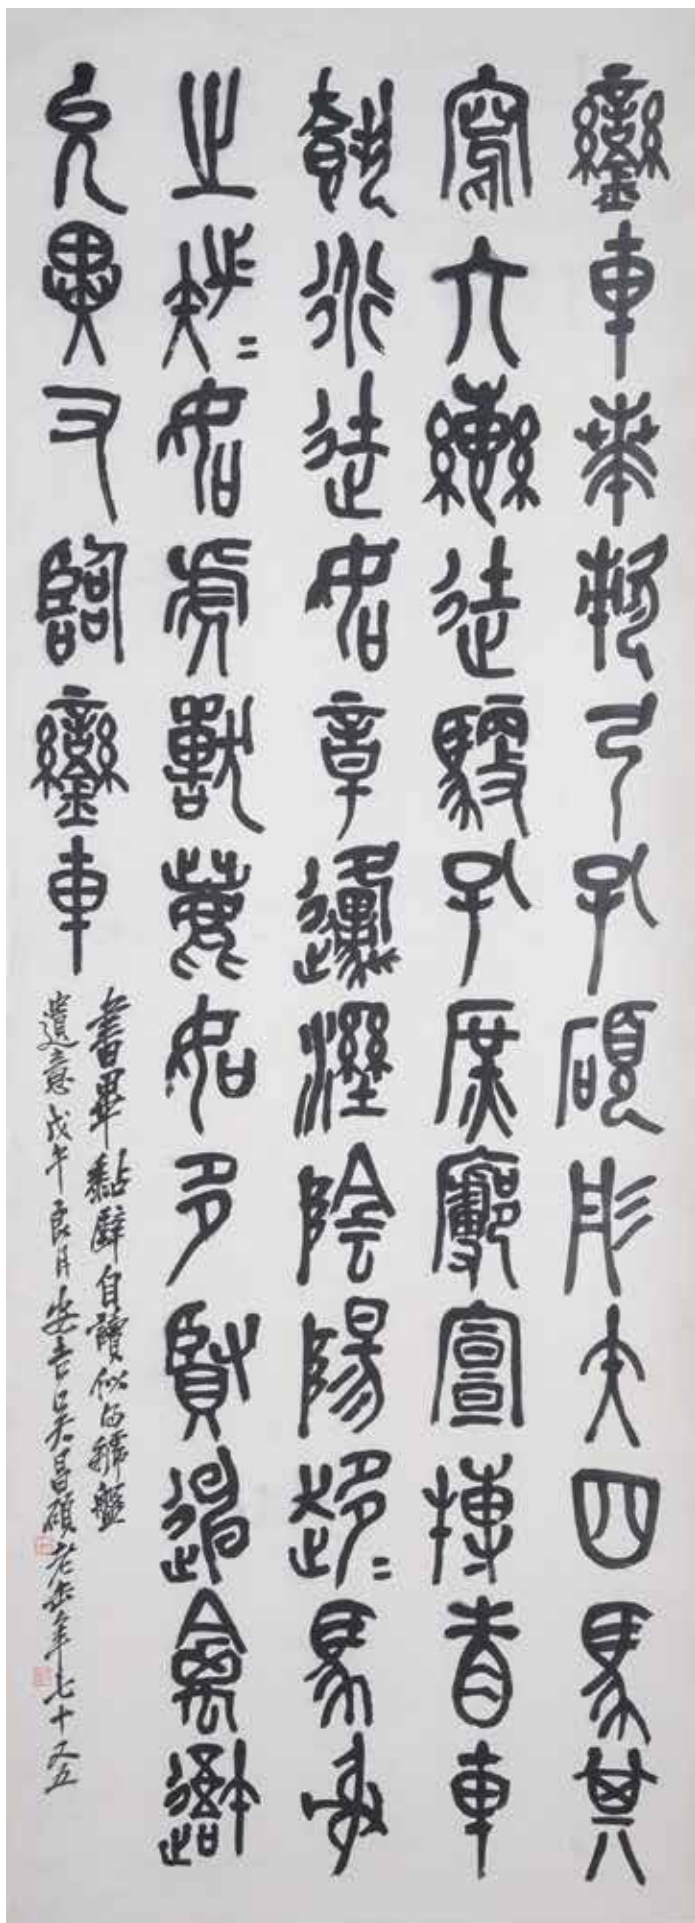 鑾車𠦪敕弓孔碩彤矢四馬其
寫六轡徒馭孔庶廓宣搏眚車
載行徒如章邍溼陰陽趍=馬射
之=如虎獸鹿如多賢迪禽
允異又鑾車
書畢黏壁自讀似白虢盤
遺意戊午良月安吉吳昌碩老缶年七十又五